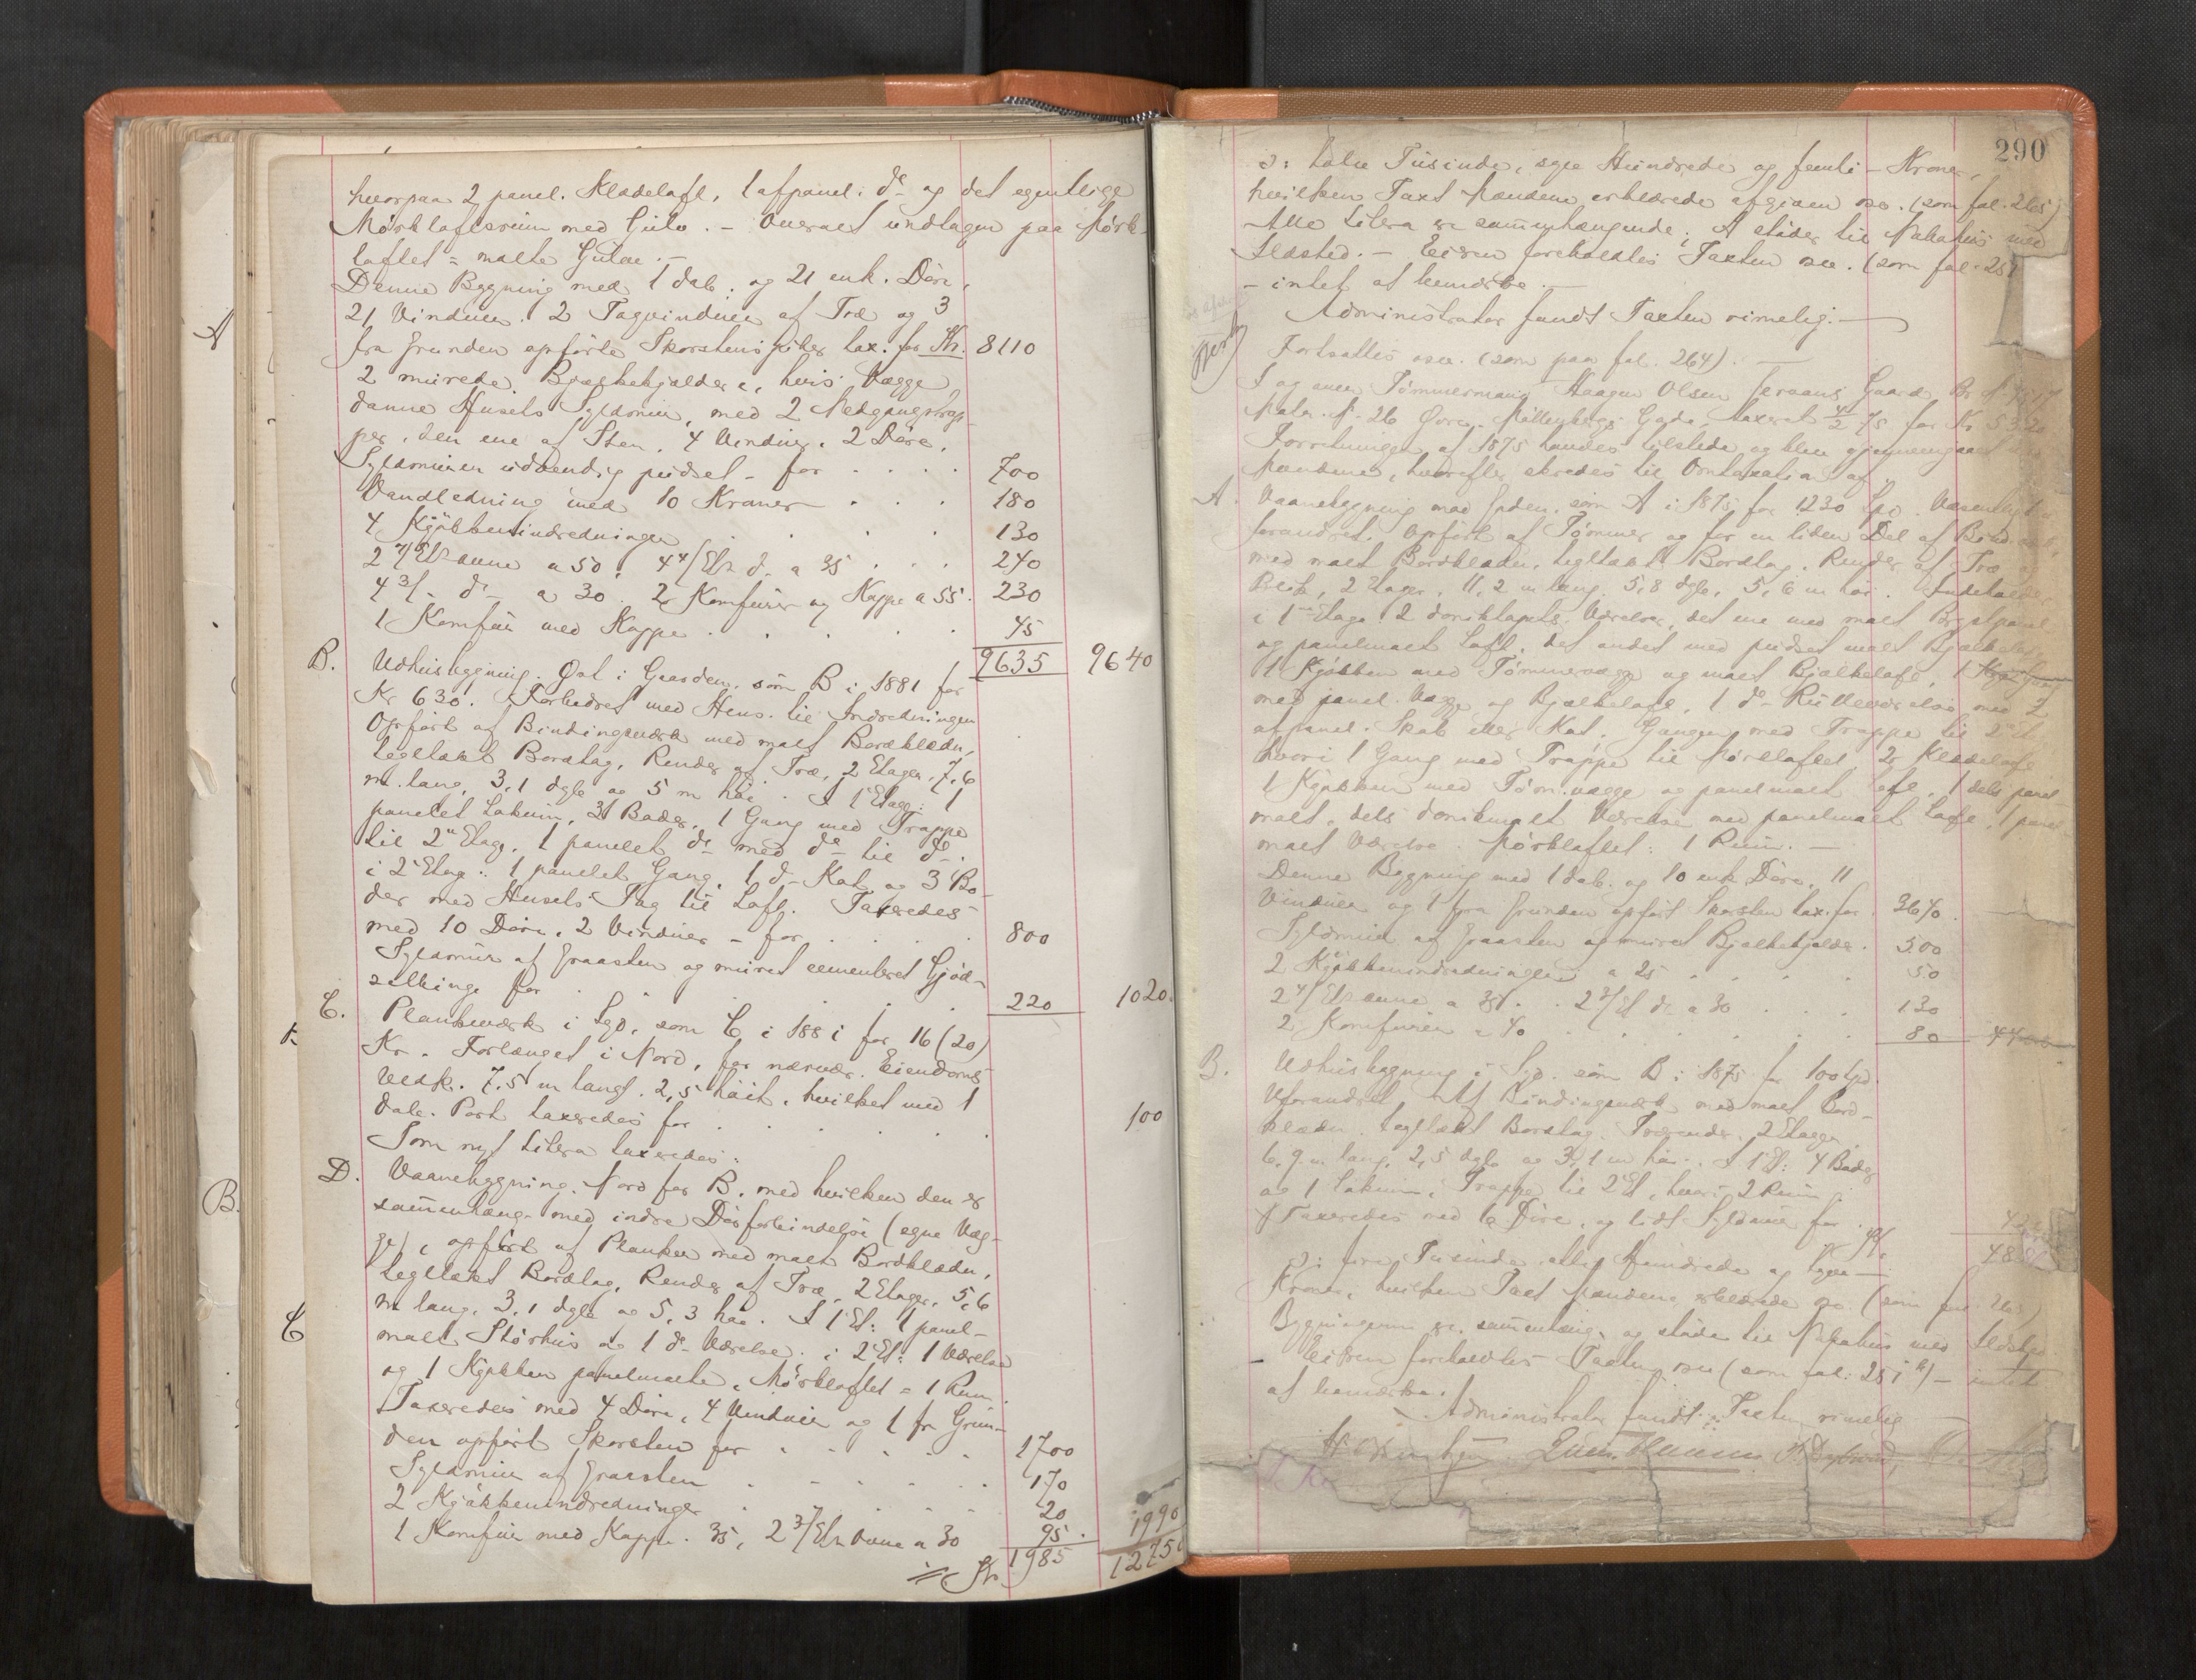 hvorpaa 2 panel. Klædeloft, 1 afpanel. do og det egentlige
Mørkloftsrum med Gulv. - Overalt undtagen paa Mørk-
loftet = malte Gulve. -
Denne Bygning med 1 dob. og 21 enk. Döre,
21 Vinduer. 2 Tagvinduer af Træ og 3
fra Grunden opförte Skorstenspiber tax. for Kr. 8110
2 murede Bjælkekjældere, hvis Vægge
danne Husets Syldmur, med 2 Nedgangstrap-
per, den ene af Sten, 4 Vinduer. 2 Döre.
Syldmuren udvendig pudset - for . . . . 700
Vandledning med 10 Kraner . . . 180
4 Kjökkenindredninger . . . . 130
2 4/Et. ovne a 50, 4 4/Et. do a 35 . . . 240
4 3/- do - a 30. 2 Komfurer og Kappe a 55. 230
1 Komfur med Kappe . . . . . 45
9635 9640
B. Udhusbygning. Öst i Gaarden, som B i 1881 for
Kr 630. Forbedret med Hens. til Indredningen
Opfört af Bindingsverk med malt Bordklædn,
tegltækt Bordtag, Render af Træ, 2 Etager, 7,6
m. lang, 3,1 dyb og 5 m höi. I 1 Etage: 1
panelet Lokum, 3 Boder, 1 Gang med Trappe
til 2n Etage, 1 panelet do med do til do.
i 2 Etag: 1 panelet Gang, 1 do Kot og 3 Bo-
der med Husets Tag til Loft. Taxeredes
med 10 Döre, 2 Vinduer - for . . . . 800
Syldmur af Graasten og muret cementeret Gjöd-
selbinge for . . . . . . 220 1020.
C. Plankeverk i Syd, som C i 1881 for 16 (20)
Kr. Forlænget i Nord, for nærvær. Eiendoms
Vedk. 7,5 m langt. 2,5 höit, hvilket med 1
dob. Port taxeredes for . . . . . . 100
Som nyt Litera taxeredes:
D. Vaanebygning. Nord for B, med hvilken den er
sammenhæng. med indre Dörforbindelse (egne Væg-
ge), opfört af Planker med malt Bordklædn,
tegltækt Bordtag, Render af Træ, 2 Etager, 5,6
m lang, 3,1 dyb og 5,3 höi. I 1 Et: 1 panel-
malt Störhus og 1 do Værelse. i 2 Et: 1 Værelse
og 1 Kjøkken panelmalte, Mörkloftet = 1 Rum
Taxeredes med 4 Döre, 4 Vinduer og 1 fr Grun-
den opfört Skorsten for . . . . . 1700
Syldmur af Graasten . . . . . 170
2 Kjökkenindredninger . . . . 20
1 Komfur med Kappe. 35, 2 3/Et. Ovne a 30 95.
1990
Kr. 1985 1275
290
Tusinde, syv Hundrede og femti - Kroner,
hvilken Taxt Mændene erklærede afgiven osv. (som fol. 265)
Alle Litera er sammenhængende; A stöder til Nabohus med
Ildsted. - Eieren foreholdtes Taxten osv. (som fol. 25
- intet at bemærke. -
Administrator fandt Taxten rimelig. -
Fortsattes osv. (som paa fol. 264). -
Tömmermand Haagen Olsen Gaard Br
Matr. No 26 Övre Möllenbergs Gade, taxeret 4/2 75 for Kr 5320
Forretningen af 1875 havdes tilstede og blev gjennemgaaet
Mændene, hvorefter skredes til Omtaxation af
A. Vaanebygning mod Gaden, som A i 1875 for 1230 Spd. Væsentligt
forandret. Opfört af Tömmer og for en liden Del af
med malt Bordklædn, tegltækt Bordtag. Render af Træ og
Blik, 2 Etager, 11,2 m lang, 5,8 dyb, 5,6 m höi. Indeholder
i 1 Etage: 2 Værelser, det ene med malt Brystpanel
og panelmalt Loft, det andet med pudset malt Bjælkeloft
1 Kjökken med Tömmervægge og malt Bjælkeloft, 1
med panel. Vægge og Bjælkeloft, 1 do Rulleværelse med 2
afpanel. Skab eller Kot. Gangen med Trappe til 2
hvori 1 Gang med Trappe til Mörkloftet, 2 Klædeloft
1 Kjøkken med Töm.vægge og panelmalt Loft, 1 dels panel-
malt, dels Værelse med panelmalt Loft, 1 panel-
malt Værelse. Mörkloftet: 1 Rum. -
Denne Bygning med 1 dob. og 10 enk. Döre, 11
Vinduer og 1 fra Grunden opfört Skorsten tax. for 3640.
Syldmur af Graasten og muret Bjælkekjælder. 500
2 Kjökkenindredninger a 25 . . . . 50
2 4/Et. ovne a 35. . 2 3/Et. do a 30 . . . 130
2 Komfurer a 40 . . . . . . 80
B. Udhusbygning i Syd. som B i 1875 for 100 Spd.
Uforandret. Af Bindingsverk med malt Bord-
klædn. tegltækt Bordtag. Trærender. 2 Etager
6,9 m lang, 2,5 dyb og 3,1 m höi. I 1 Et: 4 Boder
og 1 Lokum, Trappe til 2 Et, hvori 2 Rum
Taxeredes med 6 Döre, og lidt Syldmur for
fire Tusinde, otte Hundrede og
Kroner, hvilken Taxt Mændene erklærede osv. (som fol.
Bygningerne er sammenhæng. og stöder til Nabohus med Ildsted.
- Eieren foreholdtes Taxten osv (som fol. - intet
at bemærke.
Administrator fandt Taxten rimelig -